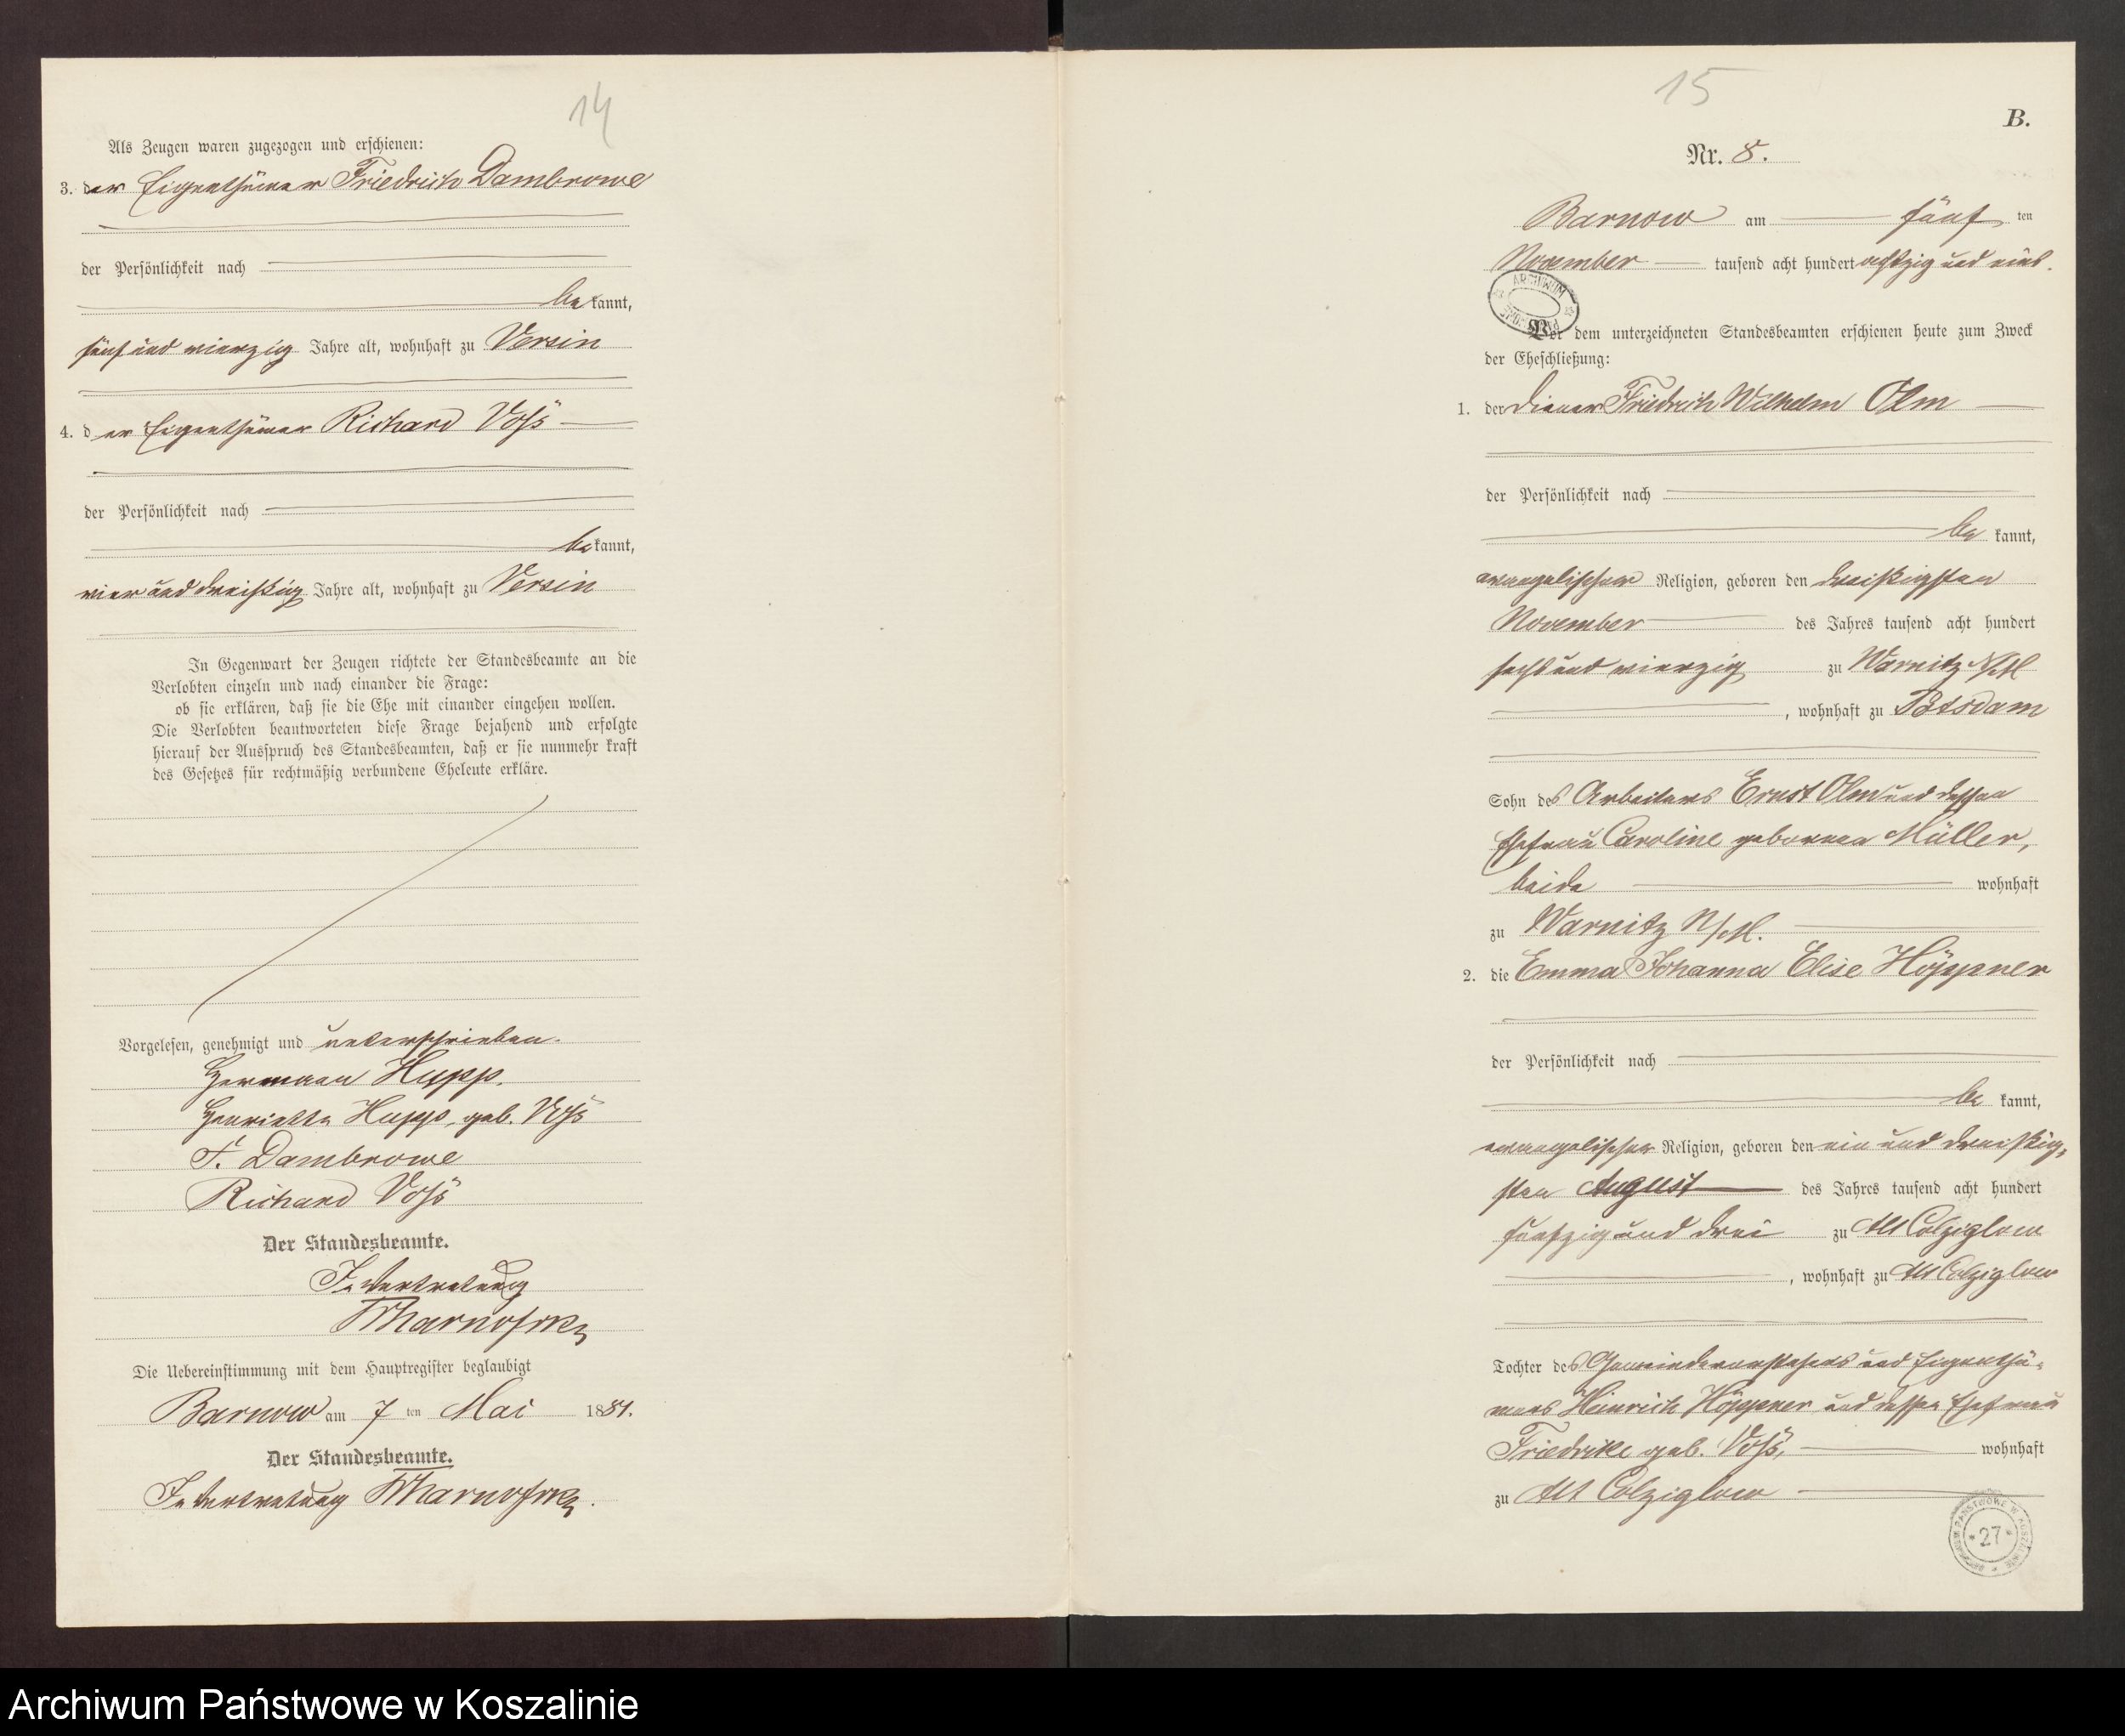 14
Als Zeugen waren zugezogen und erschienen:
3. der Eigenthümer Friedrich Dambrowe
der Persönlichkeit nach
be kannt,
fünf und vierzig Jahre alt, wohnhaft zu Versin
4. d er Eigenthümer Richard Voß
der Persönlichkeit nach
be kannt,
vier und dreißig Jahre alt, wohnhaft zu Versin
In Gegenwart der Zeugen richtete der Standesbeamte an die
Verlobten einzeln und nach einander die Frage:
ob sie erklären, daß sie die Ehe mit einander eingehen wollen.
Die Verlobten beantworteten diese Frage bejahend und erfolgte
hierauf der Ausspruch des Standesbeamten, daß er sie nunmehr kraft
des Gesetzes für rechtmäßig verbundene Eheleute erkläre.
Vorgelesen, genehmigt und unterschrieben.
Hermann Hupp.
Henriette Hupp, geb. Voß
F. Dambrowe
Richard Voß
Der Standesbeamte.
In Vertretung
Die Uebereinstimmung mit dem Hauptregister beglaubigt
Barnow am 7 ten Mai 1881.
Der Standesbeamte.
In Vertretung
15
B.
Nr. 8.
Barnow am fünf ten
November tausend acht hundert achtzig und eins.
ARCHIWUM
Vor dem unterzeichneten Standesbeamten erschienen heute zum Zweck
der Eheschließung:
1. der Diener Friedrich Wilhelm Olm
der Persönlichkeit nach
be kannt,
evangelischer Religion, geboren den dreißigsten
November des Jahres tausend acht hundert
sechs und vierzig zu Warnitz N/M
, wohnhaft zu Potsdam
Sohn des Arbeiters Ernst Olm und dessen
Ehefrau Caroline geborenen Müller,
beide wohnhaft
zu Warnitz N/M.
2. die Emma Johanna Elise Höppner
der Persönlichkeit nach
be kannt,
evangelischer Religion, geboren den ein und dreißig-
sten August des Jahres tausend acht hundert
fünfzig und drei zu Alt Colziglow
, wohnhaft zu Alt Colziglow
Tochter des Gemeindevorstehers und Eigenthü-
mers Heinrich Höppner und dessen Ehefrau
Friedrike geb. Voß, wohnhaft
zu Alt Colziglow
ARCHIWUM PAŃSTWOWE W KOSZALINIE
* 27 *
Archiwum Państwowe w Koszalinie